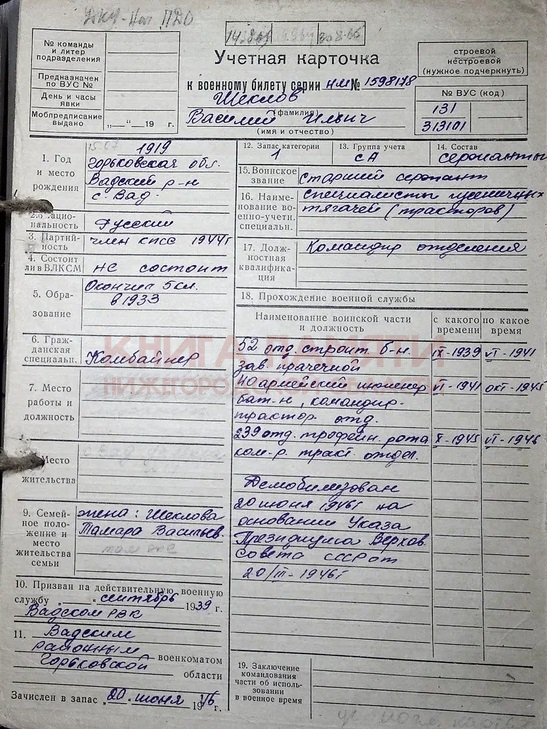 № команды
и литер
подразделения
Предназначен
по ВУС №
День и часы
явки
Мобпредписание
выдано „—“ 19 г.
Учетная карточка
к военному билету серии НМ № 1598178
Шеклов
(фамилия)
Василий Ильич
(имя и отчество)
строевой
нестроевой
(нужное подчеркнуть)
№ ВУС (код)
131
313101
1. Год
и место
рождения
15.07 1919
Горьковская обл.
Вадский р-н
с. Вад
12. Запас категории
1
13. Группа учета
СА
14. Состав
сержанты
15. Воинское
звание
Старший сержант
2. Национальность
Русский
16. Наименование
во-
енно-учетн.
специальн.
специалисты гусеничных
тягачей (тракторов)
3. Партий-
ность
член КПСС 1944г
4. Состоит
ли в ВЛКСМ
не состоит
17. Долж-
ностная
квалифика-
ция
Командир отделения
5. Обра-
зование
Окончил 5 кл.
в 1933
18. Прохождение военной службы
Наименование воинской части
и должность
с какого
времени
по какое
время
6. Граж-
данская
специальн.
Комбайнер
52 отд. строит. б-н. IX-1939 VI-1941
зав. прачечной
7. Место
работы и
должность
40 армейский инженер VI-1941 окт-1945
бат-н, командир
трактор. отд.
239 отд. трофейн. рота X-1945 VI-1946
ком-р тракт. отдел.
Место
жительства
Демобилизован
20 июня 1946г на
основании Указа
Президиума Верхов.
Совета СССР от
20/III-1946г
9. Семей-
ное по-
ложение и
место
жительства
семьи
жена: Шеклова
Тамара Васильев.
там же
10. Призван на действительную военную
службу сентябрь 1939 г.
Вадском РВК
11. Вадским
районным военкоматом
Горьковской области
Зачислен в запас „20“ июня 1946 г.
19. Заключение
командования
части об исполь-
зовании
в военное время
КНИГА ПАМЯТИ